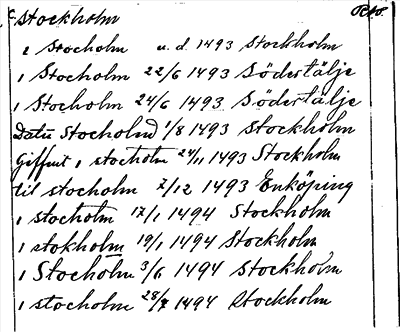 Stockholm
i Stocholm u. d. 1493 Stockholm
i Stocholm 22/6 1493 Södertälje
i Stocholm 24/6 1493 Södertälje
Datu Stocholm 1/8 1493 Stockholm
Giffuit i stocholm 24/11 1493 Stockholm
til stocholm 7/12 1493 Enköping
i stocholm 17/1 1494 Stockholm
i stokholm 19/1 1494 Stockholm
i Stocholm 3/6 1494 Stockholm
i stocholm 28/7 1494 Stockholm